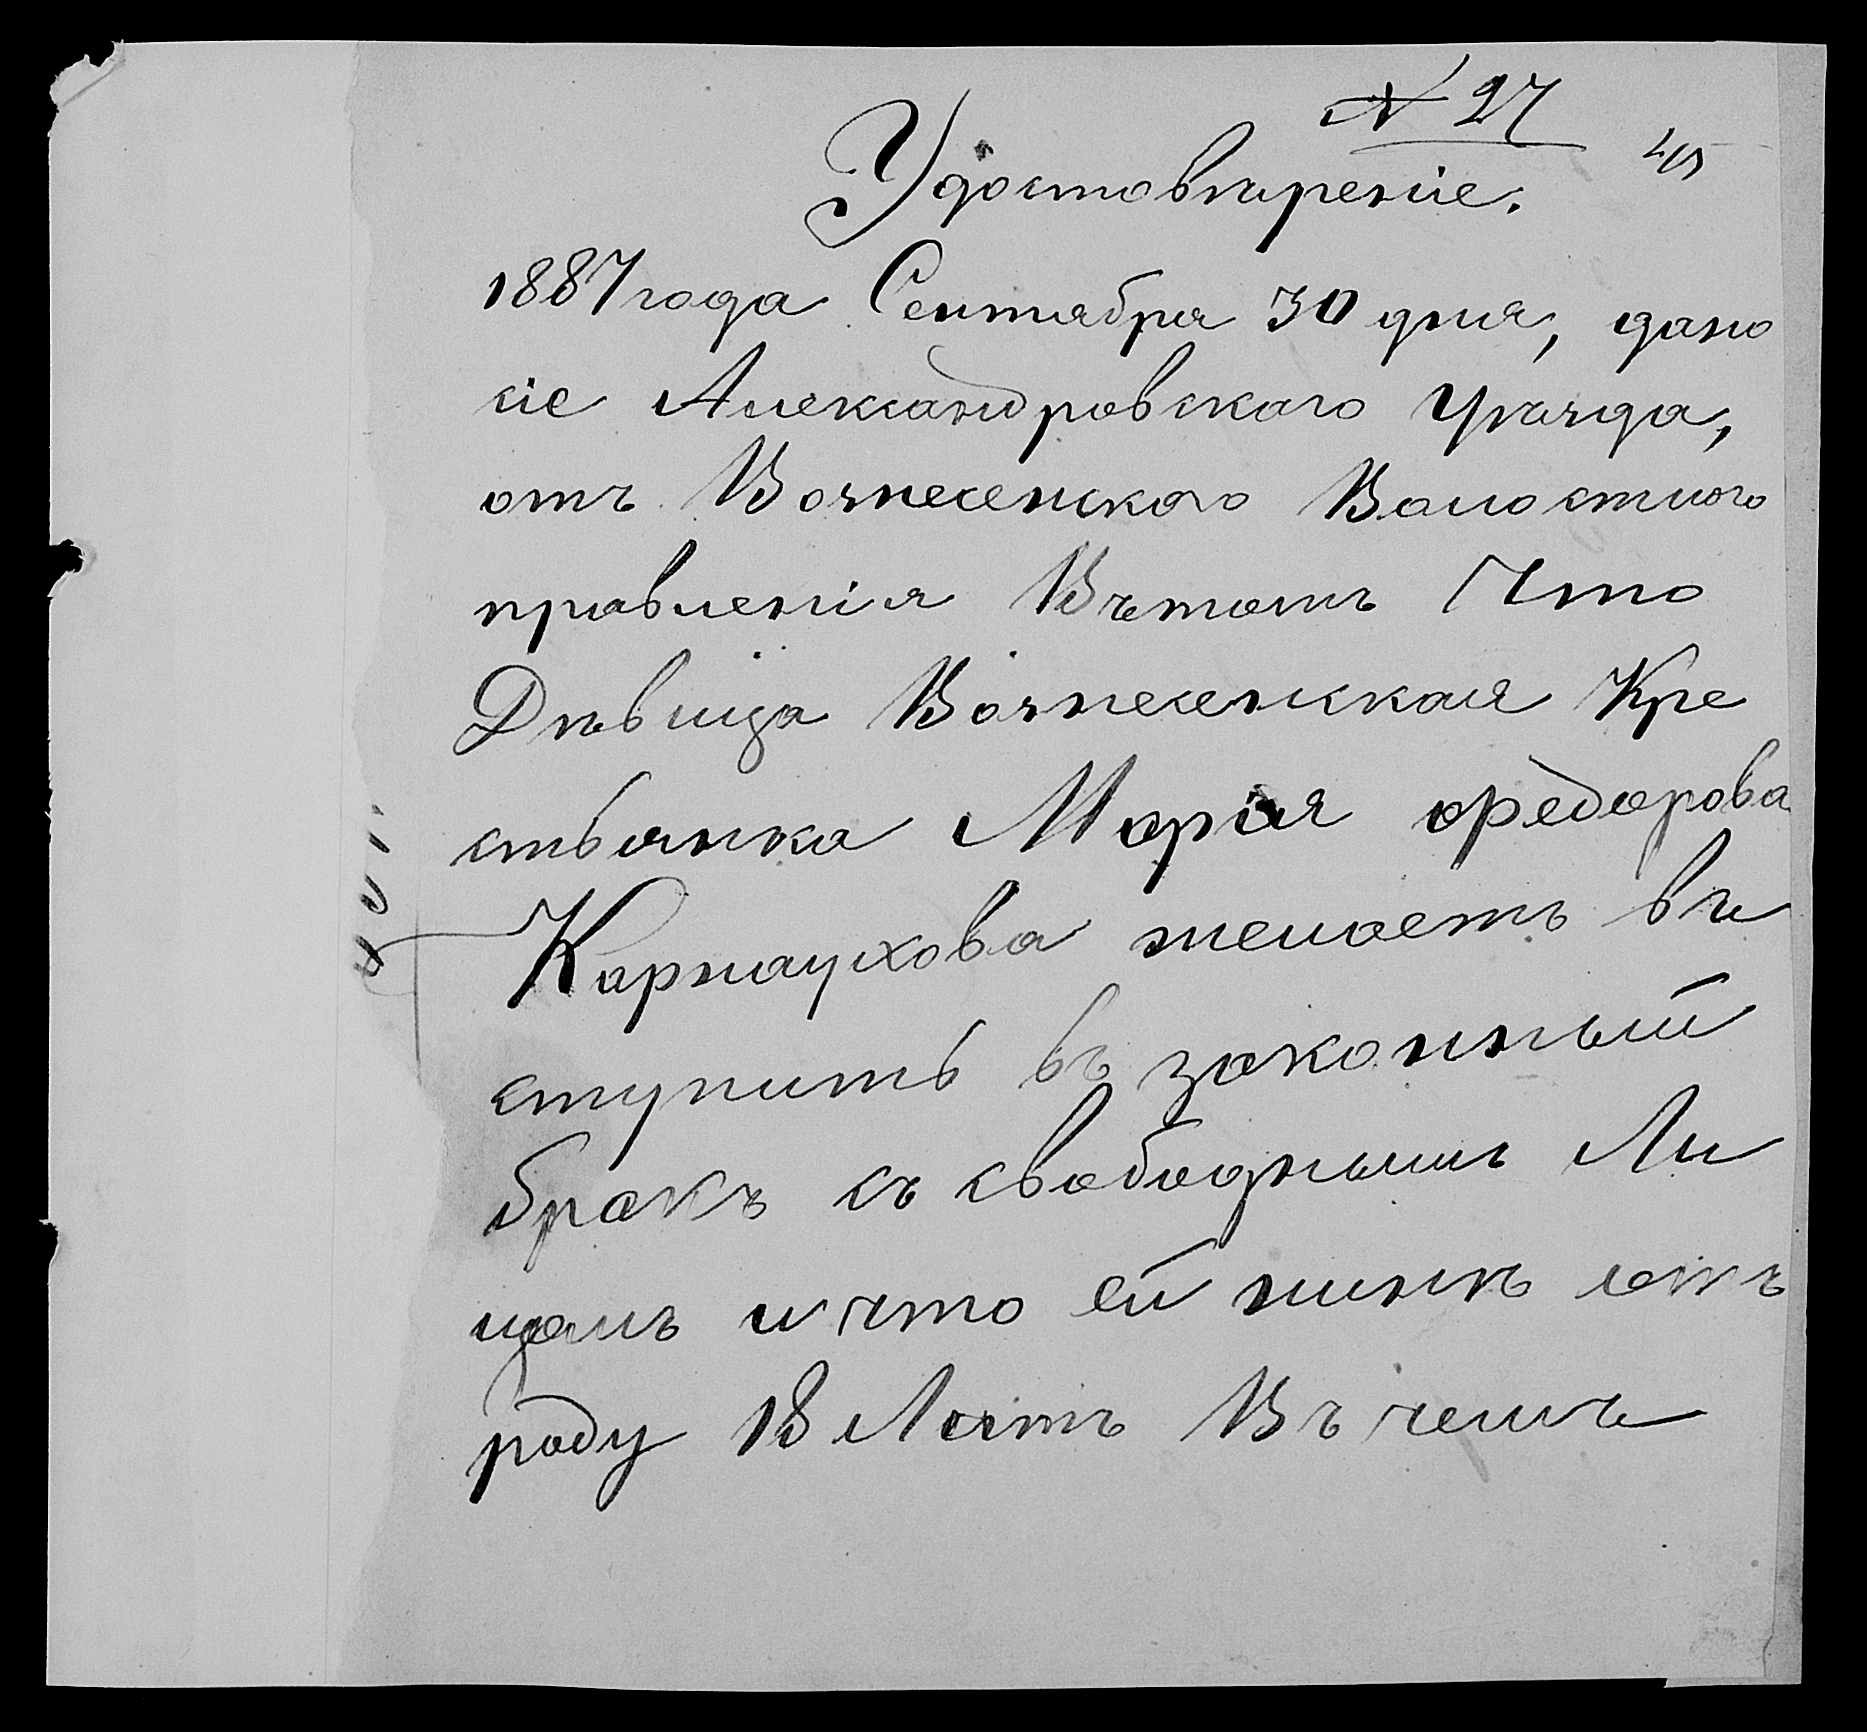 № 27
45
Удостовѣреніе.
1887 года Сентября 30 дня, дано
сіе Александровскаго уѣзда,
отъ Вознесенскаго Волостного
правленія Вътомъ Что
Дѣвица Вознесенская Кре
стьянка Марія Федорова
Карнаухова желаетъ въ
ступить въ законный
бракъ съ свободнымъ Ли
цомъ и что ей нинѣ отъ
роду 18 Лѣтъ Въ чемъ